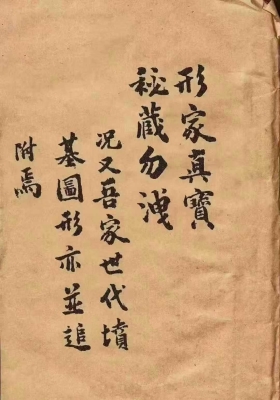 形家真寶
秘蔵勿洩
况又吾家世代墳
墓圖形亦並追
附焉